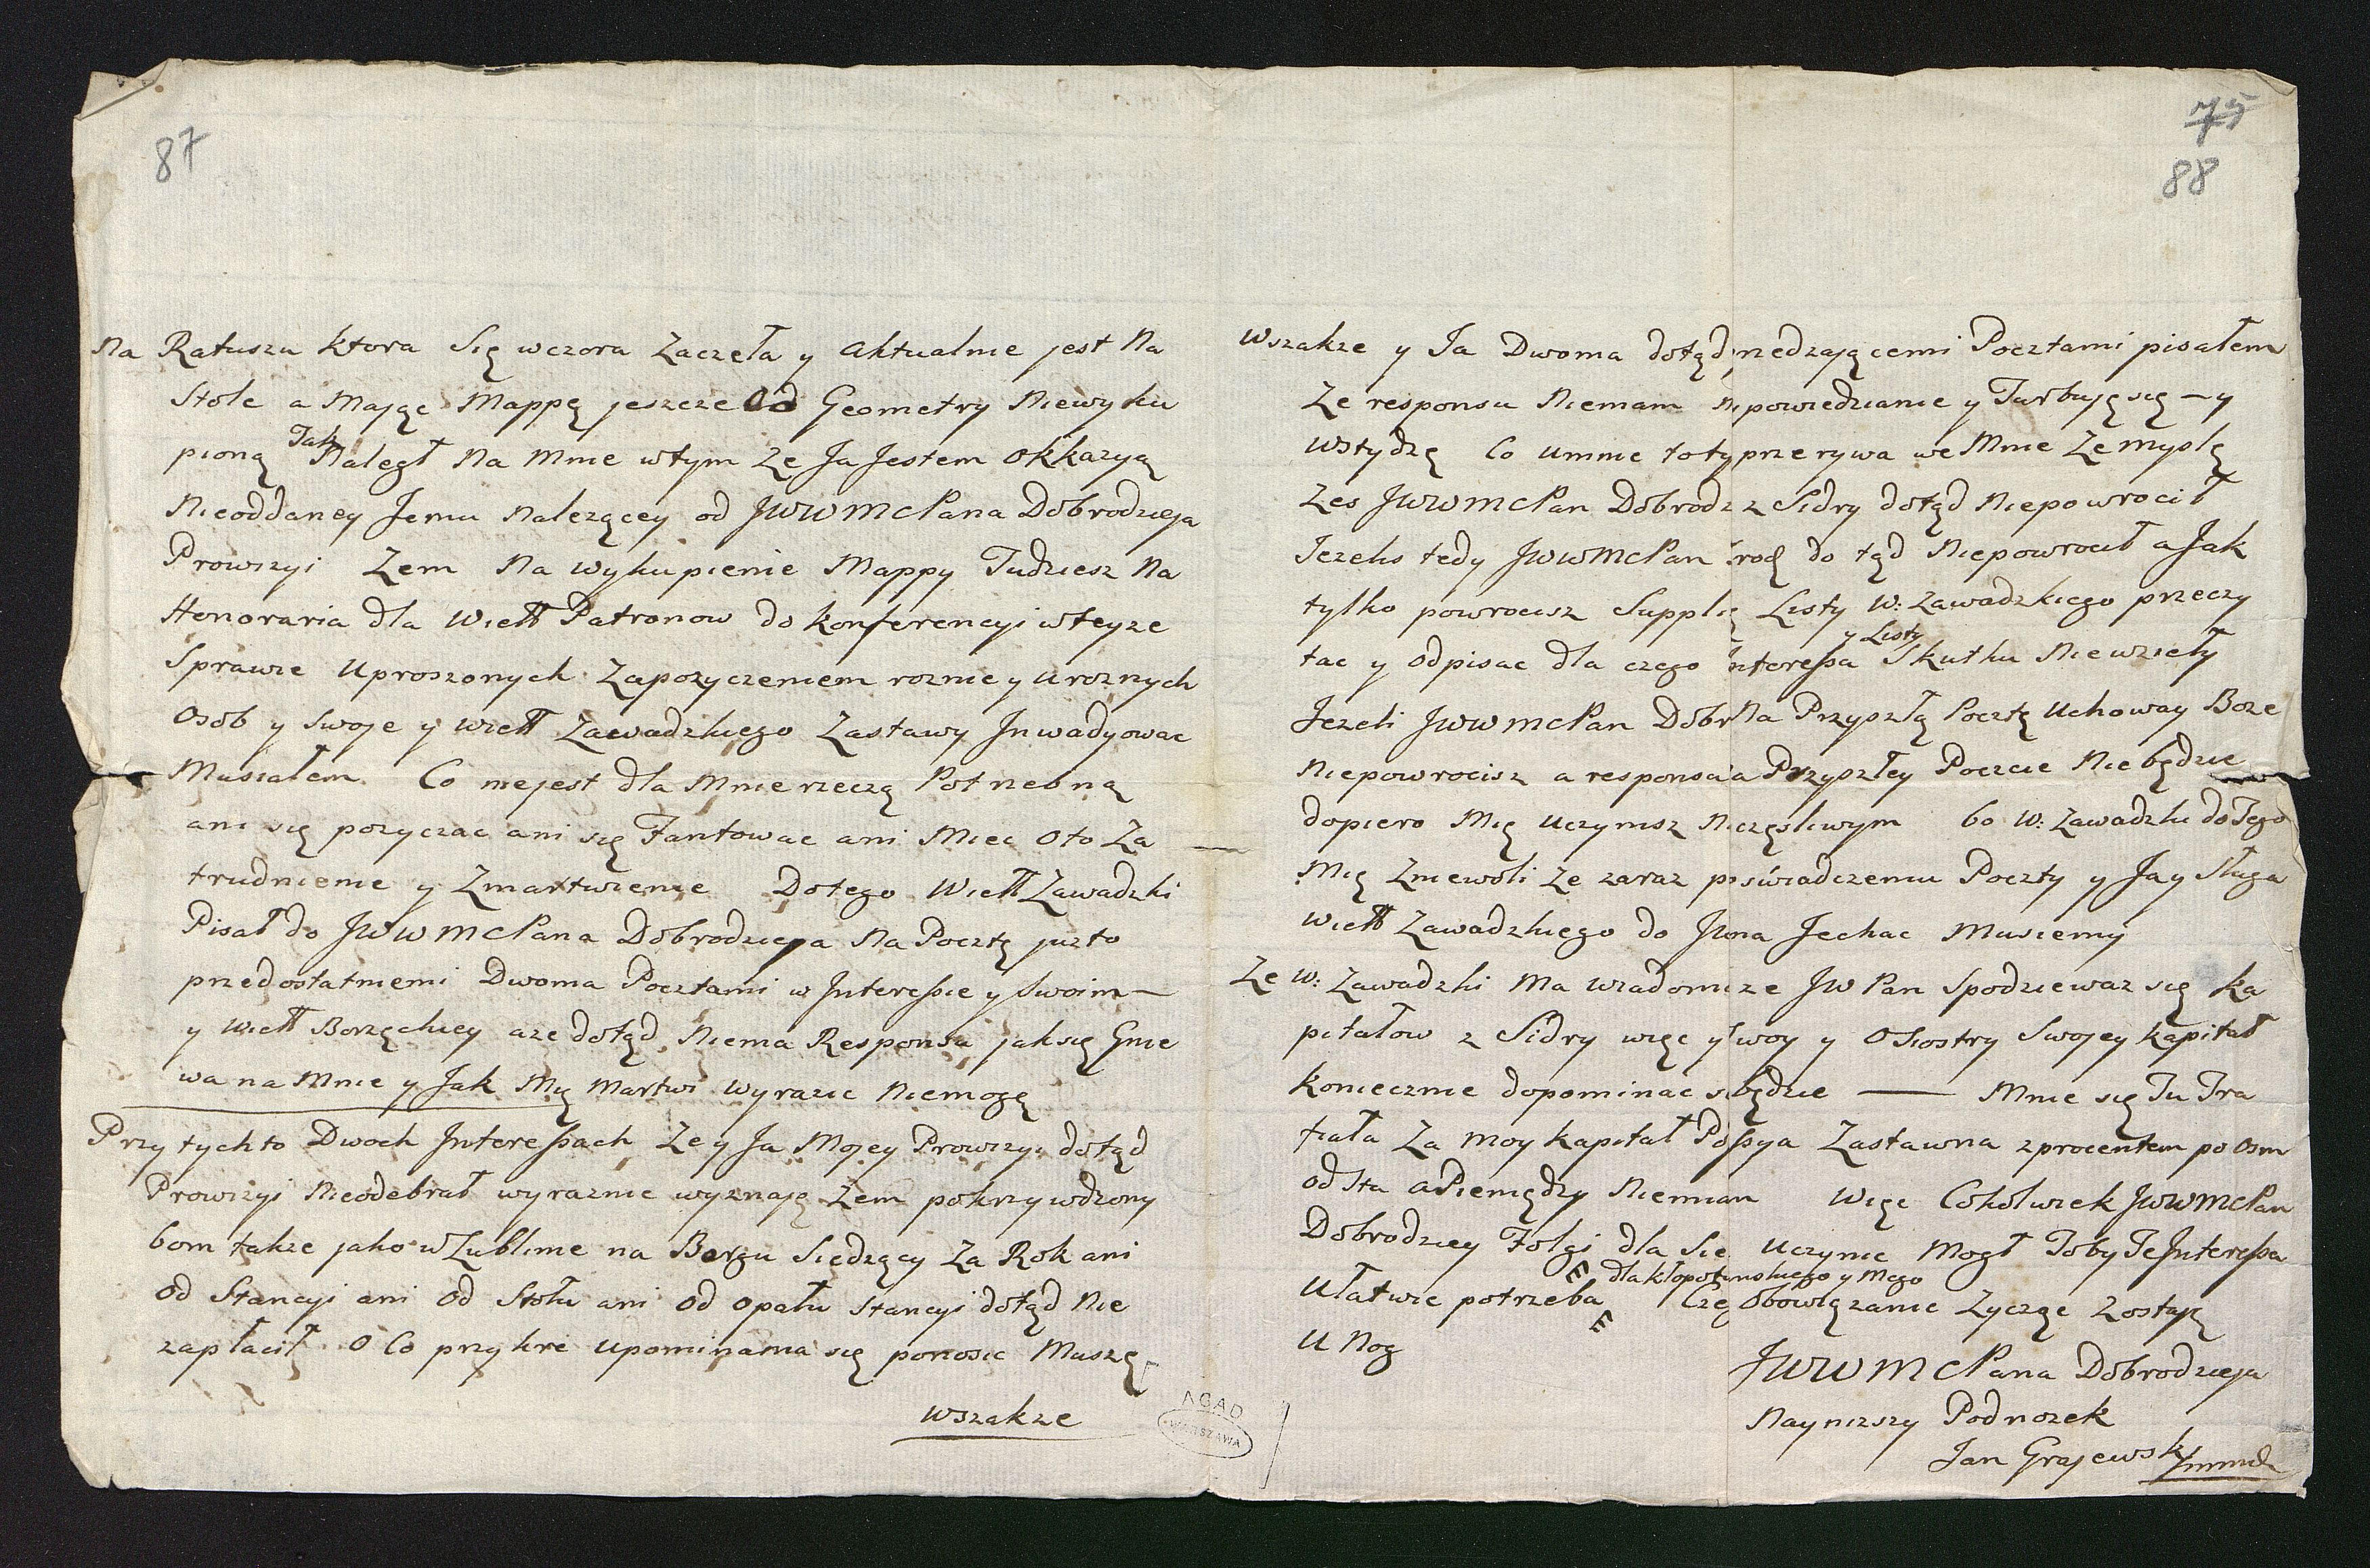 87
na Ratuszu ktora Się wczora Zaczeła y aktualnie jest Na
Stole a Mając Mappę jeszcze Od Geometry Niewyku
pioną Tak Naległ Na Mnie wtym Ze Ja Jestem Okkazyą
Nieoddaney Jemu Nalezącey od JWWMCPana Dobrodzieja
Prowizyi Zem Na wykupienie Mappy Tudziesz Na
Honoraria dla Wiell Patronow do konferencyi wteyze
Sprawie Uproszonych Zapozyczeniem roznie y u roznych
Osob y Swoje y Wiell Zawadzkiego Zastawy Inwadyowac
Musiałem Co niejest dla Mnie rzeczą Potrzebną
ani się pozyczac ani się Fantowac ani Miec Oto Za
trudnienie y Zmartwienie Dotego Wiell Zawadzki
Pisał do JWWMCPana Dobrodzieja Na Pocztę juzto
przedostatniemi Dwoma Pocztami w Interessie y Swoim —
y Wiell Borzęckiey aze dotąd Niema Responsu jak się Gnie
wa na Mnie y Jak Mię Martwi Wyrazic Niemogę
Przy tychto Dwoch Interessach Ze y Ja Mojey Prowizyi dotąd
Prowizyi Nieodebrał wyraznie wyznaję Zem pokrzywdzony
bom takze jako w Lublinie na Borgu Siedzący Za Rok ani
Od Stancyi ani Od Stołu ani Od Opału Stancyi dotąd Nie
zapłacił O Co przykre upominania się ponosic Muszę
wszakze
AGAD
WARSZAWA
75
88
Wszakze y Ja Dwoma dotąd Pocztami pisałem
Ze responsu Niemam y Turbuję się — y
Wstydzę Co umnie przerywa we Mnie Ze myslę
Zes JWWMCPan Dobrodz z Sidry dotąd Niepowrocił
Jezelis tedy JWWMCPan do tąd Niepowrocił a Jak
tylko powrocisz Supplię Listy W: Zawadzkiego przeczy
tac y odpisac dla czego Interessa y Listy Skutku Niewzieły
Jezeli JWWMCPan Dobr Na Przyszłą Pocztę Uchoway Boze
Niepowrocisz a Przyszłey Poczcie Niebędzie
dopiero Mię Uczynisz bo W: Zawadzki do Tego
Mię Zniewoli Ze zaraz Poczty y Ja y Sługa
Wiell Zawadzkiego do Jechac Musiemy
Ze W: Zawadzki Ma Ze JW Pan Spodziewaz się Ka
pitałow z Sidry więc y O Siostry Swojey Kapitał
koniecznie dopominac będzie — Mnie się Tu Tra
fiała Za moy Kapitał Zastawna z procentem po Osm
od Sta a Pieniędzy Niemam Więc Cokolwiek JWWMCPan
Dobrodziey Folgi dla Się Uczynic Mogł Toby Te Interessa
Ułatwic potrzeba dla y Mego Obowiązanie Zycząc Zostaję
U Nog
JWWMCPana Dobrodzieja
Naynizszy Podnozek
Jan Grajewski